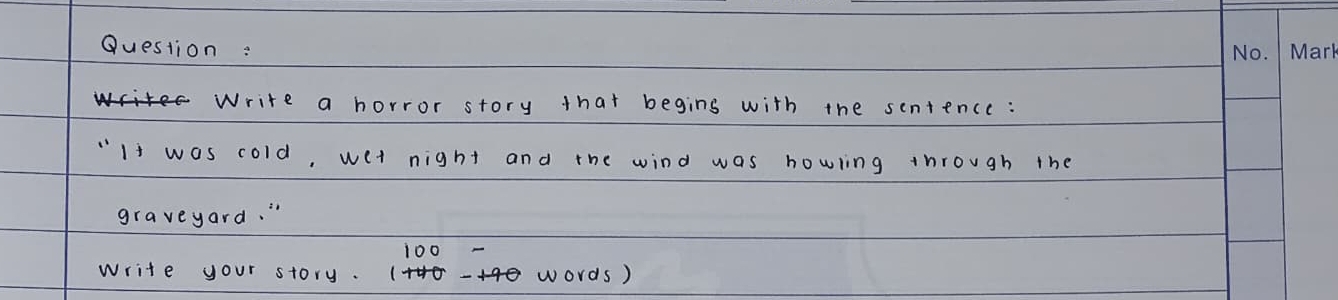 No. Mark
Question :
Write a horror story that begins with the sentence :
"It was cold, wet night and the wind was howling through the
graveyard."
100 -
Write your story. (140 - 190 words)